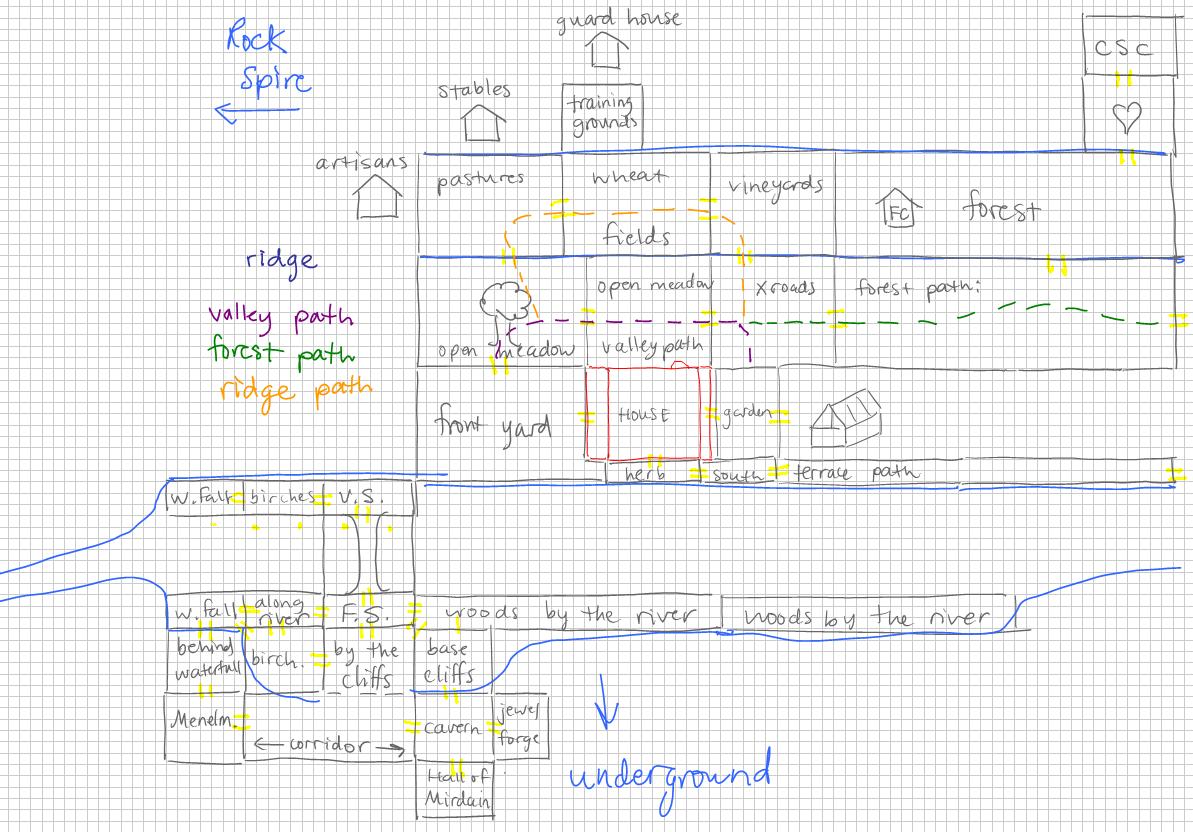 guard house
Rock
Spire
CSC
stables
training
grounds
artisans
pastures
wheat
vineyards
FC
forest
fields
ridge
open meadow
xroads
forest path:
valley path
forest path
ridge path
open meadow
valley path
front yard
HOUSE
garden
herb
south
terrace path
w.fall
birches
V.S.
w.fall
along
river
F.S.
woods by the river
woods by the river
behind
waterfall
birch.
by the
cliffs
base
cliffs
Menelm.
corridor
cavern
jewel
forge
Hall of
Mirdain
underground